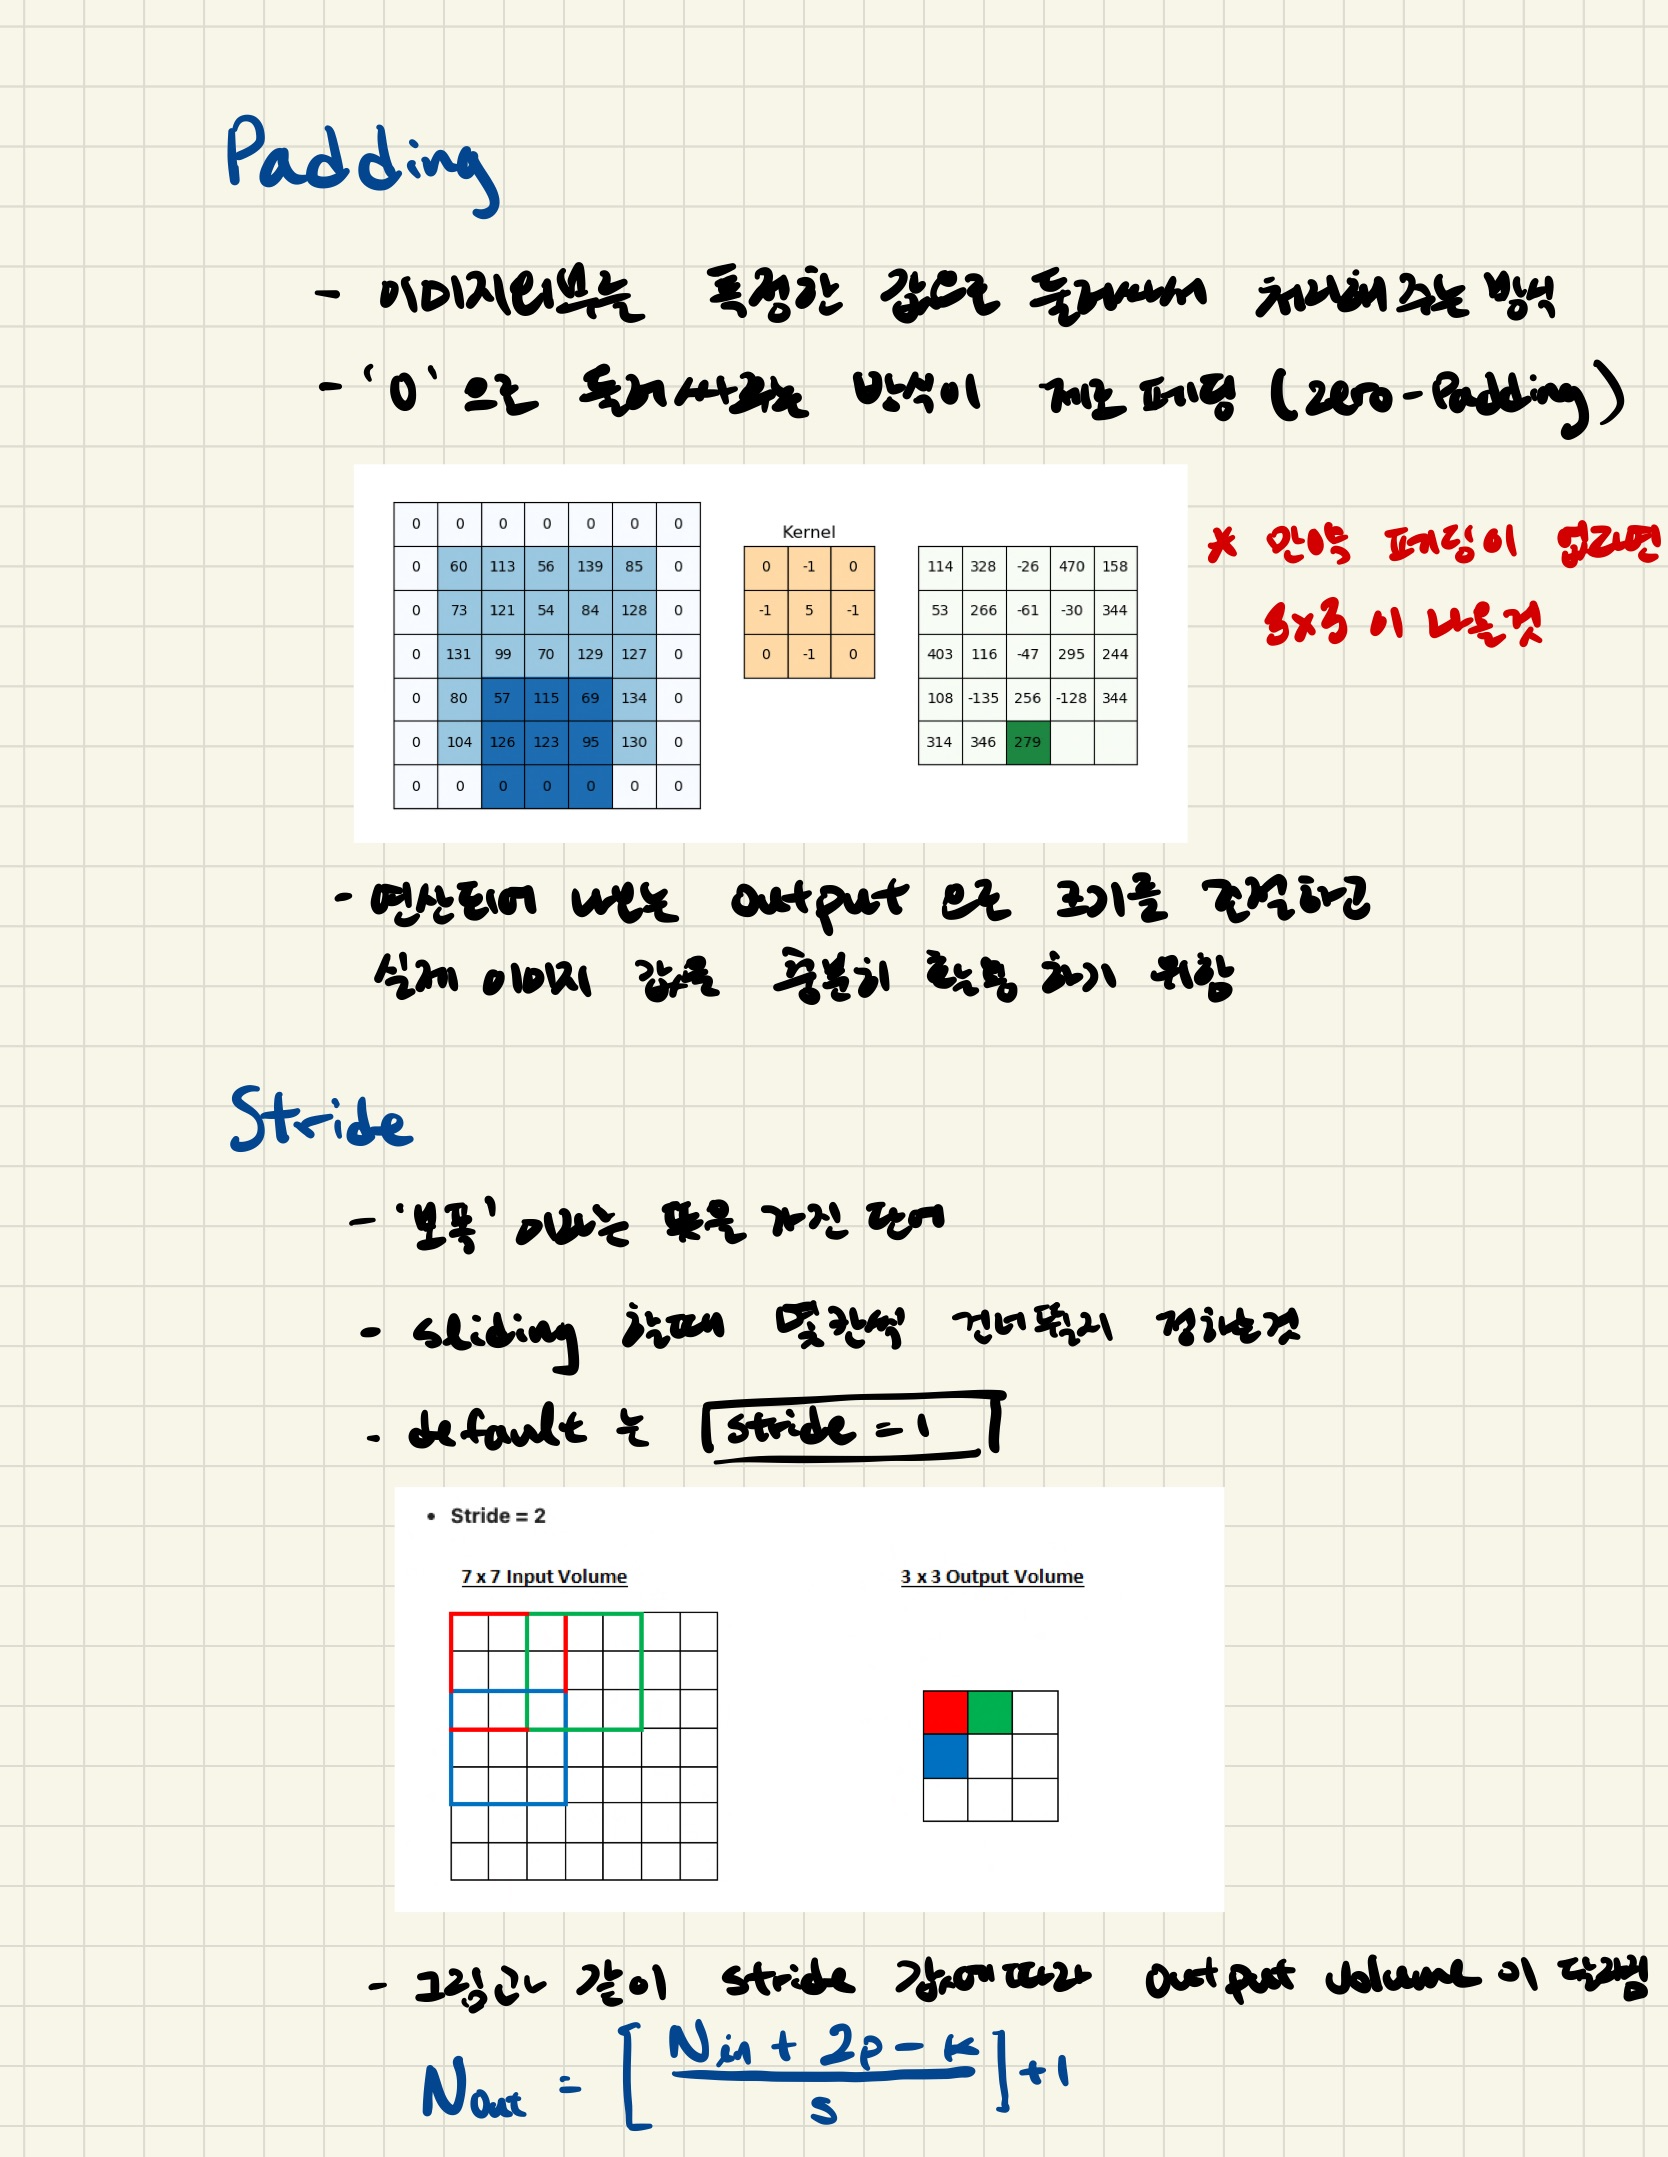 Padding
- 이미지외부는 특정한 값으로 둘러싸서 처리해 주는 방식
- '0' 으로 둘러싸주는 방식이 제로 패딩 (zero-Padding)
Kernel
0 0 0 0 0 0 0
0 60 113 56 139 85 0
0 73 121 54 84 128 0
0 131 99 70 129 127 0
0 80 57 115 69 134 0
0 104 126 123 95 130 0
0 0 0 0 0 0 0
0 -1 0
-1 5 -1
0 -1 0
114 328 -26 470 158
53 266 -61 -30 344
403 116 -47 295 244
108 -135 256 -128 344
314 346 279
* 만약 패딩이 없다면
3x3 이 나올것
- 연산되어 나오는 output 으로 크기를 조절하고
실제 이미지 값을 충분히 활용 하기 위함
Stride
- '보폭' 이라는 뜻을 가진 단어
- sliding 할때 몇칸씩 건너뛸지 정하는것
- default 는 stride = 1
• Stride = 2
7 x 7 Input Volume
3 x 3 Output Volume
- 그림과 같이 stride 값에따라 output volume 이 달라짐
Nout = [ (Nin + 2p - k) / s ] + 1